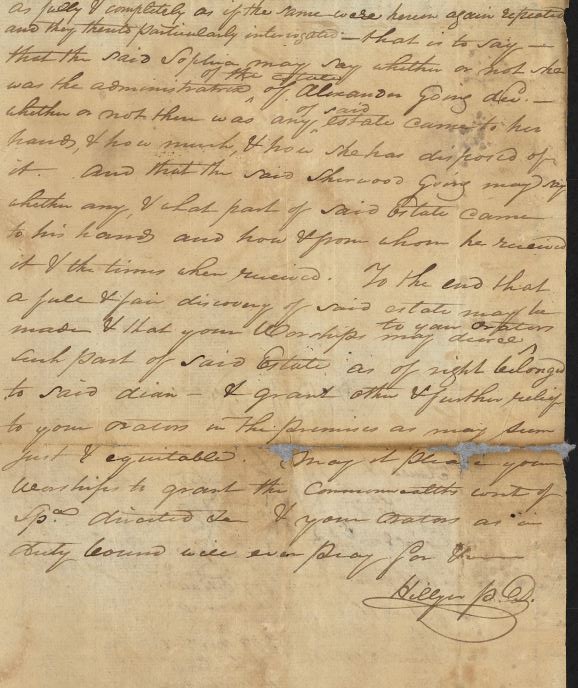 as fully & completely as if the same were herein again repeated
and they thereto particularly interrogated – that is to say –
that the said Sophia may say whether or not she
of the estate
was the administratrix of Alexander Going decd. –
of said
whether or not there was any estate came to her
hands, & how much, & how she has disposed of
it – And that the said Sherwood Going may say
whether any, & what part of said Estate came
to his hands and how & from whom he received
it & the times when received. To the end that
a full & fair discovery of said estate may be
made & that your Worships may decree
to your orators
such part of said Estate as of right belonged
to said – & grant other & further relief
to your orators in the premises as may seem
just & equitable. May it please your
Worships to grant the Commonwealths writ of
Spa. directed &c & your orators as in
duty bound will ever pray for &c
Hillyer p. Q.